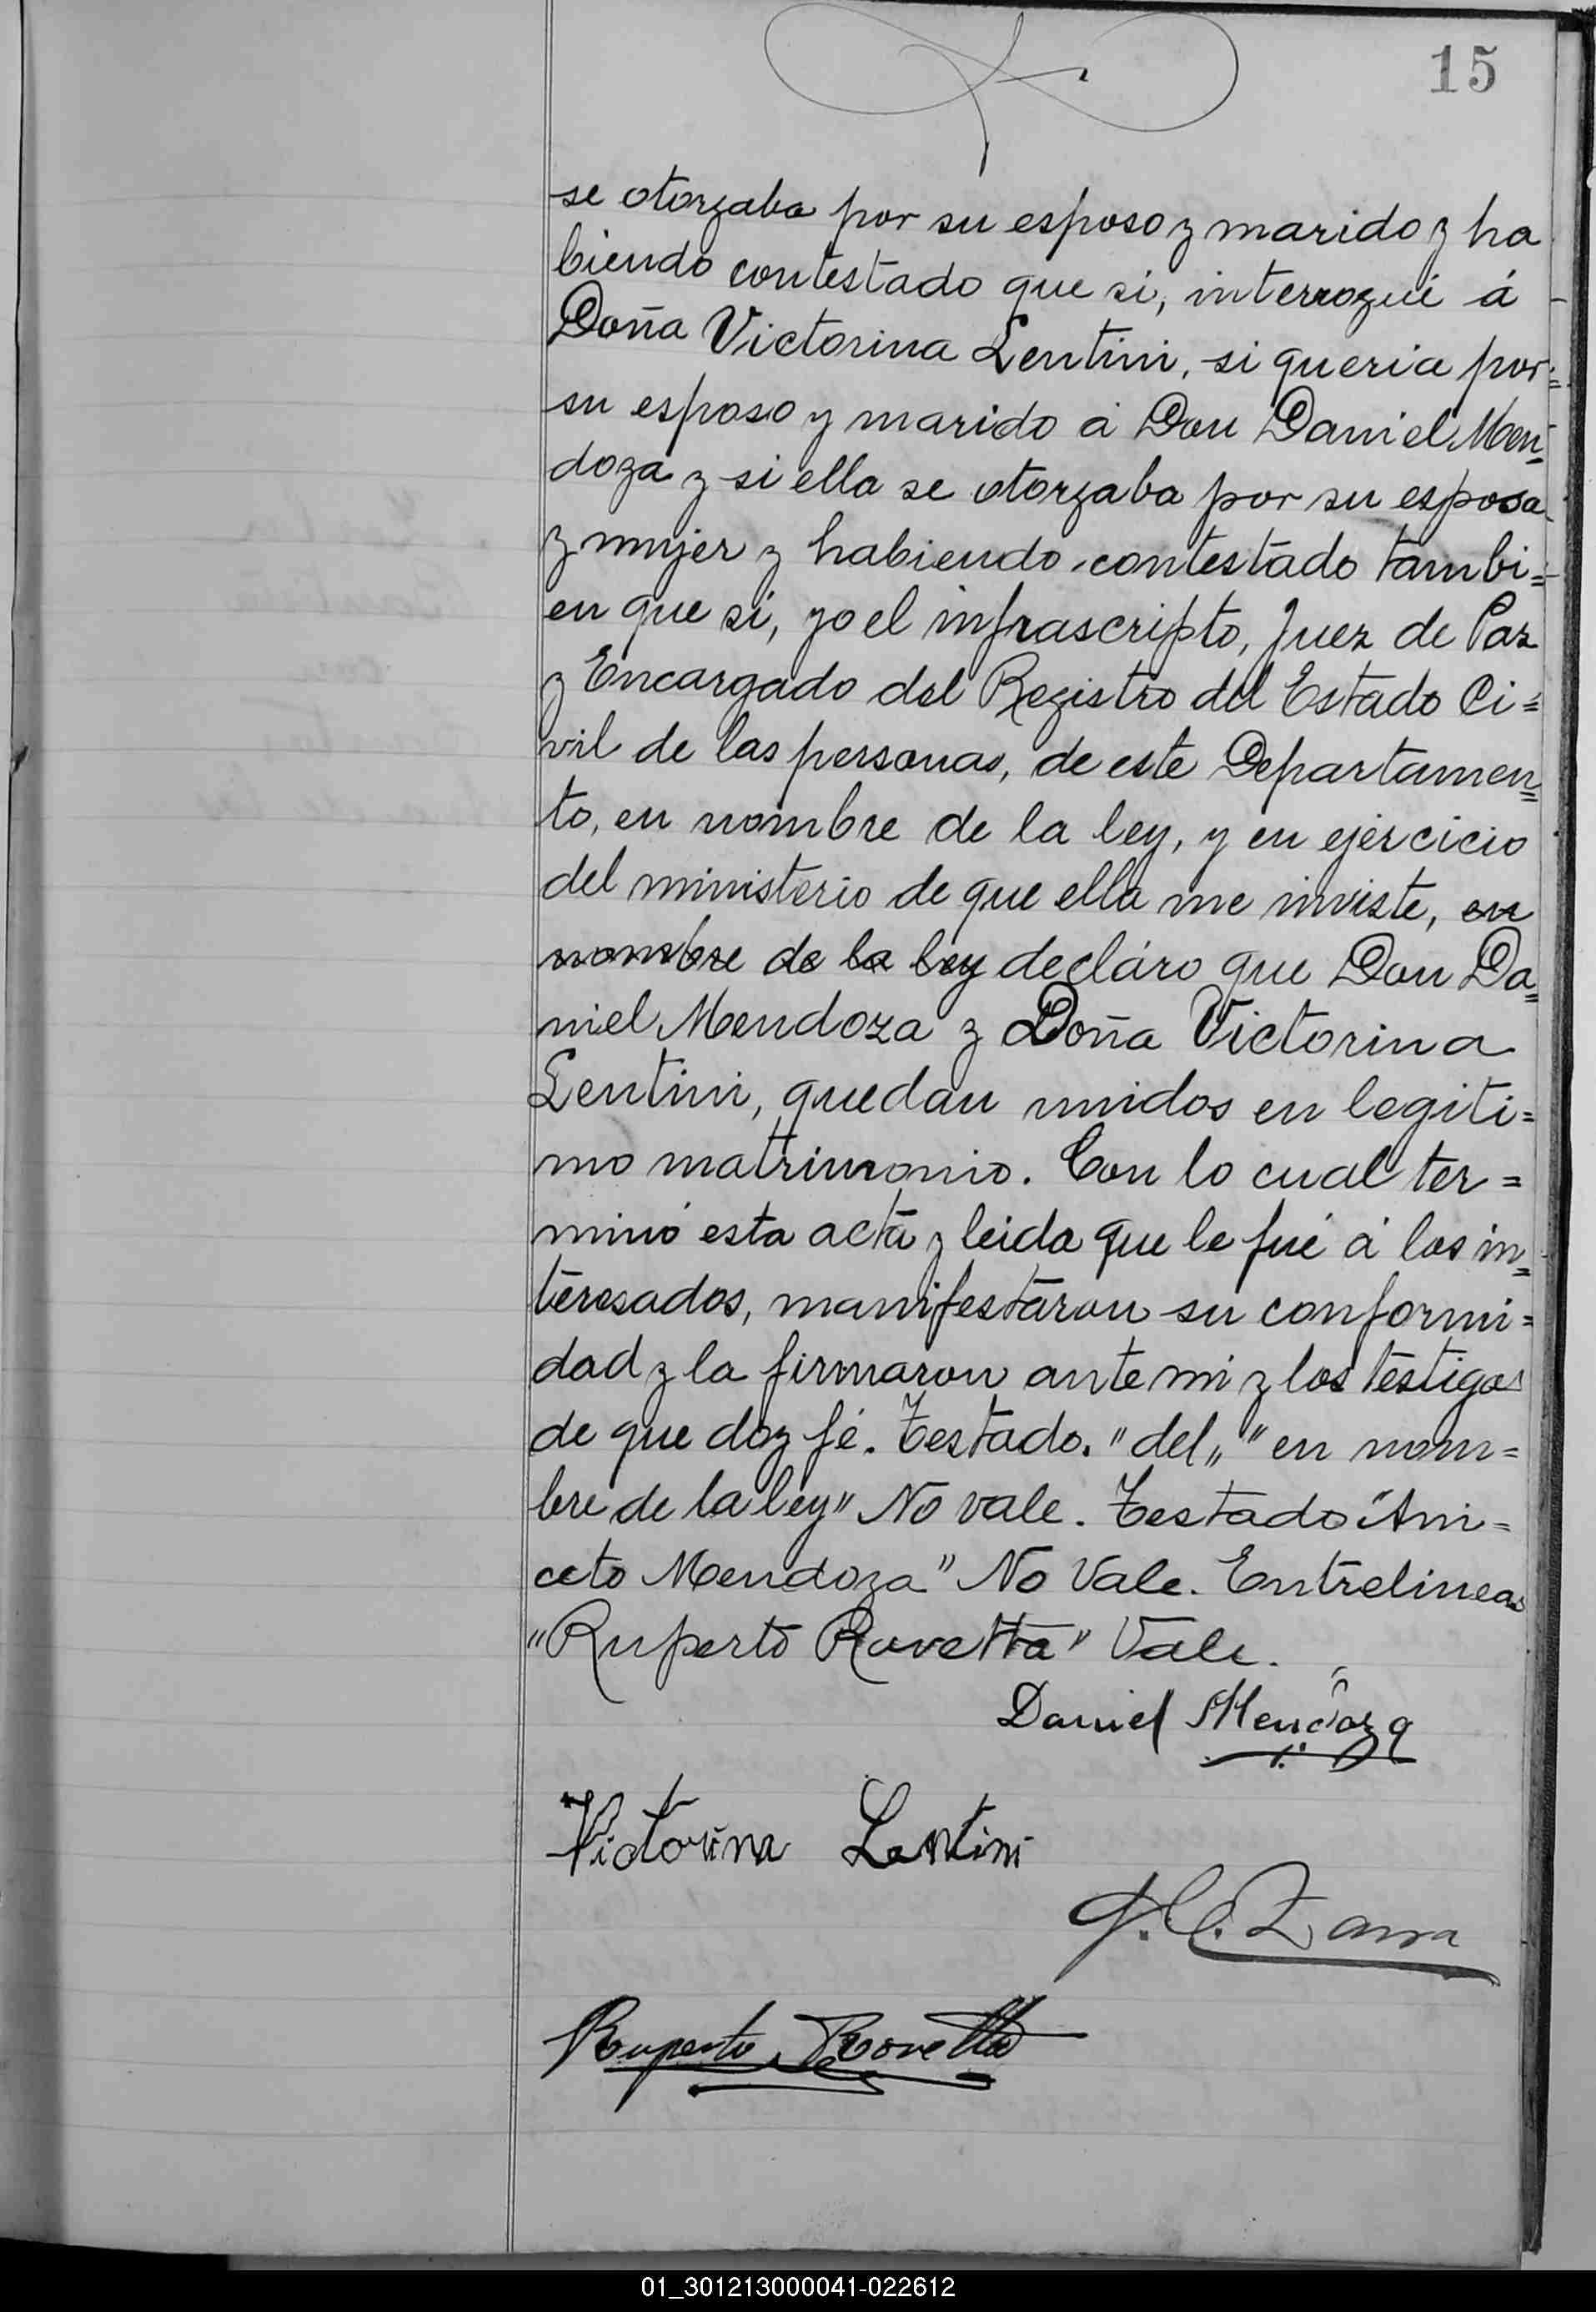 15
se otorgaba por su esposo y marido y ha
biendo contestado que si, interrogué á
Doña Victorina Lentini, si queria por=
su esposo y marido á Don Daniel Men=
doza y si ella se otorgaba por su esposa
y mujer y habiendo contestado tambi=
en que si, yo el infrascripto, Juez de Paz
y Encargado del Registro del Estado Ci=
vil de las personas, de este Departamen=
to, en nombre de la ley, y en ejercicio
del ministerio de que ella me inviste, en
nombre de la ley decláro que Don Da=
niel Mendoza y Doña Victorina
Lentini, quedan unidos en legiti=
mo matrimonio. Con lo cual ter=
minó esta acta y leida que le fué á los in=
teresados, manifestaron su conformi=
dad y la firmaron ante mi y los testigos
de que doy fé. Testado. "del" "en nom=
bre de la ley" No vale. Testado "Ani=
ceto Mendoza" No Vale. Entrelineas
"Ruperto Rovetta" Vale.
Daniel Mendoza
Victorina Lentini
Ruperto Rovetta
01_301213000041-022612